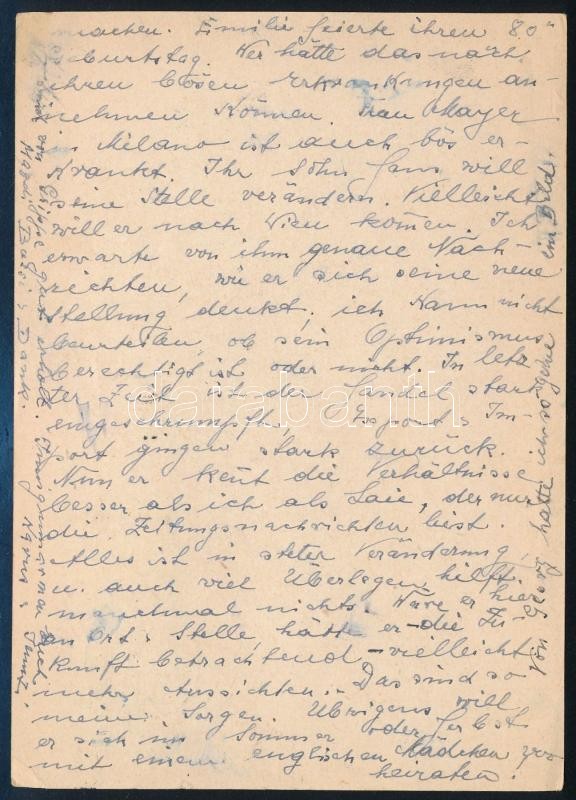 machen. Emilie feierte ihren 80"
Geburtstag. Wer hätte das nach
ihren bösen Erkrankungen an-
nehmen können. Frau Mayer
in Milano ist auch bös er-
krankt. Ihr Sohn Hans will
seine Stelle verändern. Vielleicht
will er nach Wien komen. Ich
erwarte von ihm genaue Nach-
richten, wie er sich seine neue
Stellung denkt, ich kann nicht
beurteilen, ob sein Optimismus
berechtigt ist oder nicht. In letz-
ter Zeit ist der Handel stark
eingeschrumpft, Export u. Im-
port gingen stark zurück.
Nun er kent die Verhältnisse
besser als ich als Laie, der nur
die Zeitungsnachrichten liest.
Alles ist in steter Veränderung,
u. auch viel Überlegen hilft
manchmal nichts. Wäre er hier
an Ort u. Stelle, hätte er die Zu-
kunft betrachtend - vielleicht
mehr Aussichten. Das sind so
meine Sorgen. Übrigens will
er sich im Sommer oder Herbst
mit einem englischen Mädchen ver-
heiraten.
Von Georg hätte ich so gerne
ein Bild.
darabanth